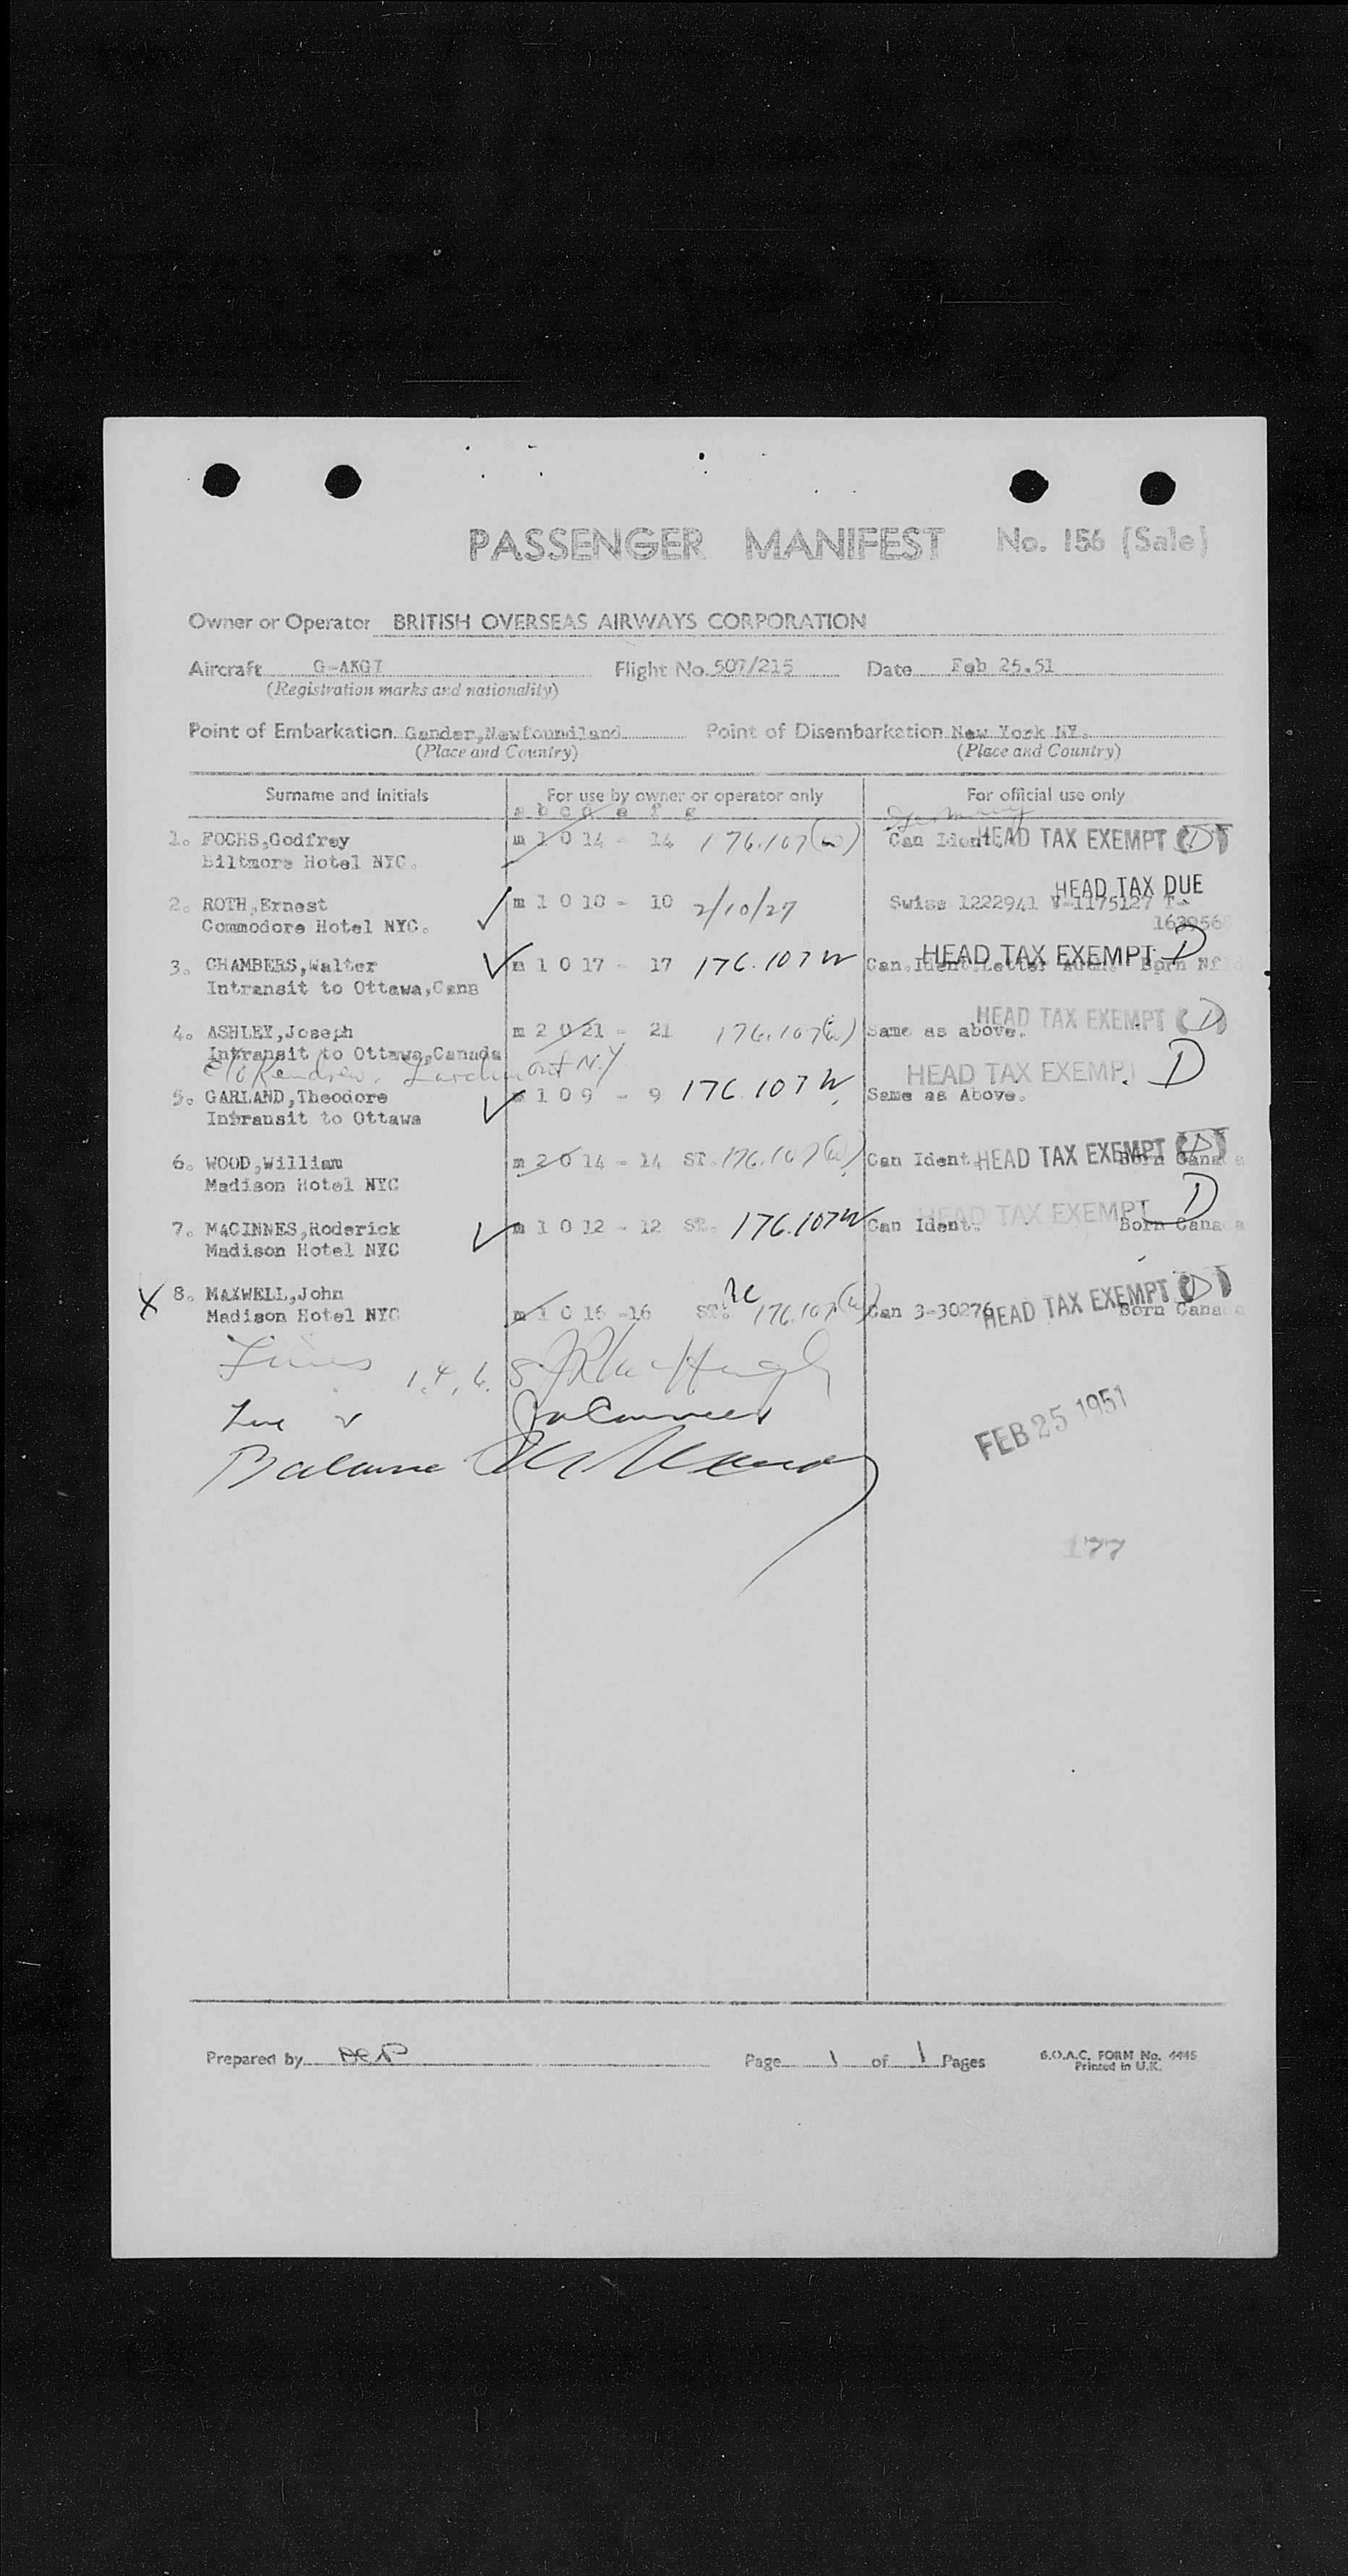 PASSENGER MANIFEST No. 156 (Sale)
Owner or Operator BRITISH OVERSEAS AIRWAYS CORPORATION
Aircraft G-AKGI Flight No. 507/215 Date Feb 25.51
(Registration marks and nationality)
Point of Embarkation Gander,Newfoundland Point of Disembarkation New York NY.
(Place and Country) (Place and Country)
Surname and Initials For use by owner or operator only For official use only
a b c d e f g Germany
1. FOCHS,Godfrey m 1 0 14 - 14 176.107(w) Can Ident. HEAD TAX EXEMPT (D)
Biltmore Hotel NYC.
HEAD TAX DUE
2. ROTH,Ernest m 1 0 10 - 10 2/10/27 Swiss 1222941 V-1175127 T-
Commodore Hotel NYC. 163956
HEAD TAX EXEMPT D
3. CHAMBERS,Walter m 1 0 17 - 17 176.107 W Can.Ident.Letter Born Nfld
Intransit to Ottawa,Cana
HEAD TAX EXEMPT (D)
4. ASHLEY,Joseph m 2 0 21 - 21 176.107(w) Same as above.
Intransit to Ottawa,Canada
c/o Larchmont N.Y
HEAD TAX EXEMPT D
5. GARLAND,Theodore m 1 0 9 - 9 176.107 W Same as Above.
Intransit to Ottawa
6. WOOD,William m 2 0 14 - 14 ST. 176.107(w) Can Ident. HEAD TAX EXEMPT (D) Born Canada
Madison Hotel NYC
HEAD TAX EXEMPT D
7. MACINNES,Roderick m 1 0 12 - 12 ST. 176.107W Can Ident. Born Canada
Madison Hotel NYC
8. MAXWELL,John
Madison Hotel NYC m 1 0 16 -16 ST. 176.107(w) Can 3-30276 HEAD TAX EXEMPT (D) Born Canada
Lines 1, 4, 6, 8
Line 2
FEB 25 1951
Balance
177
Prepared by Page 1 of 1 Pages B.O.A.C. FORM No. 4445
Printed in U.K.